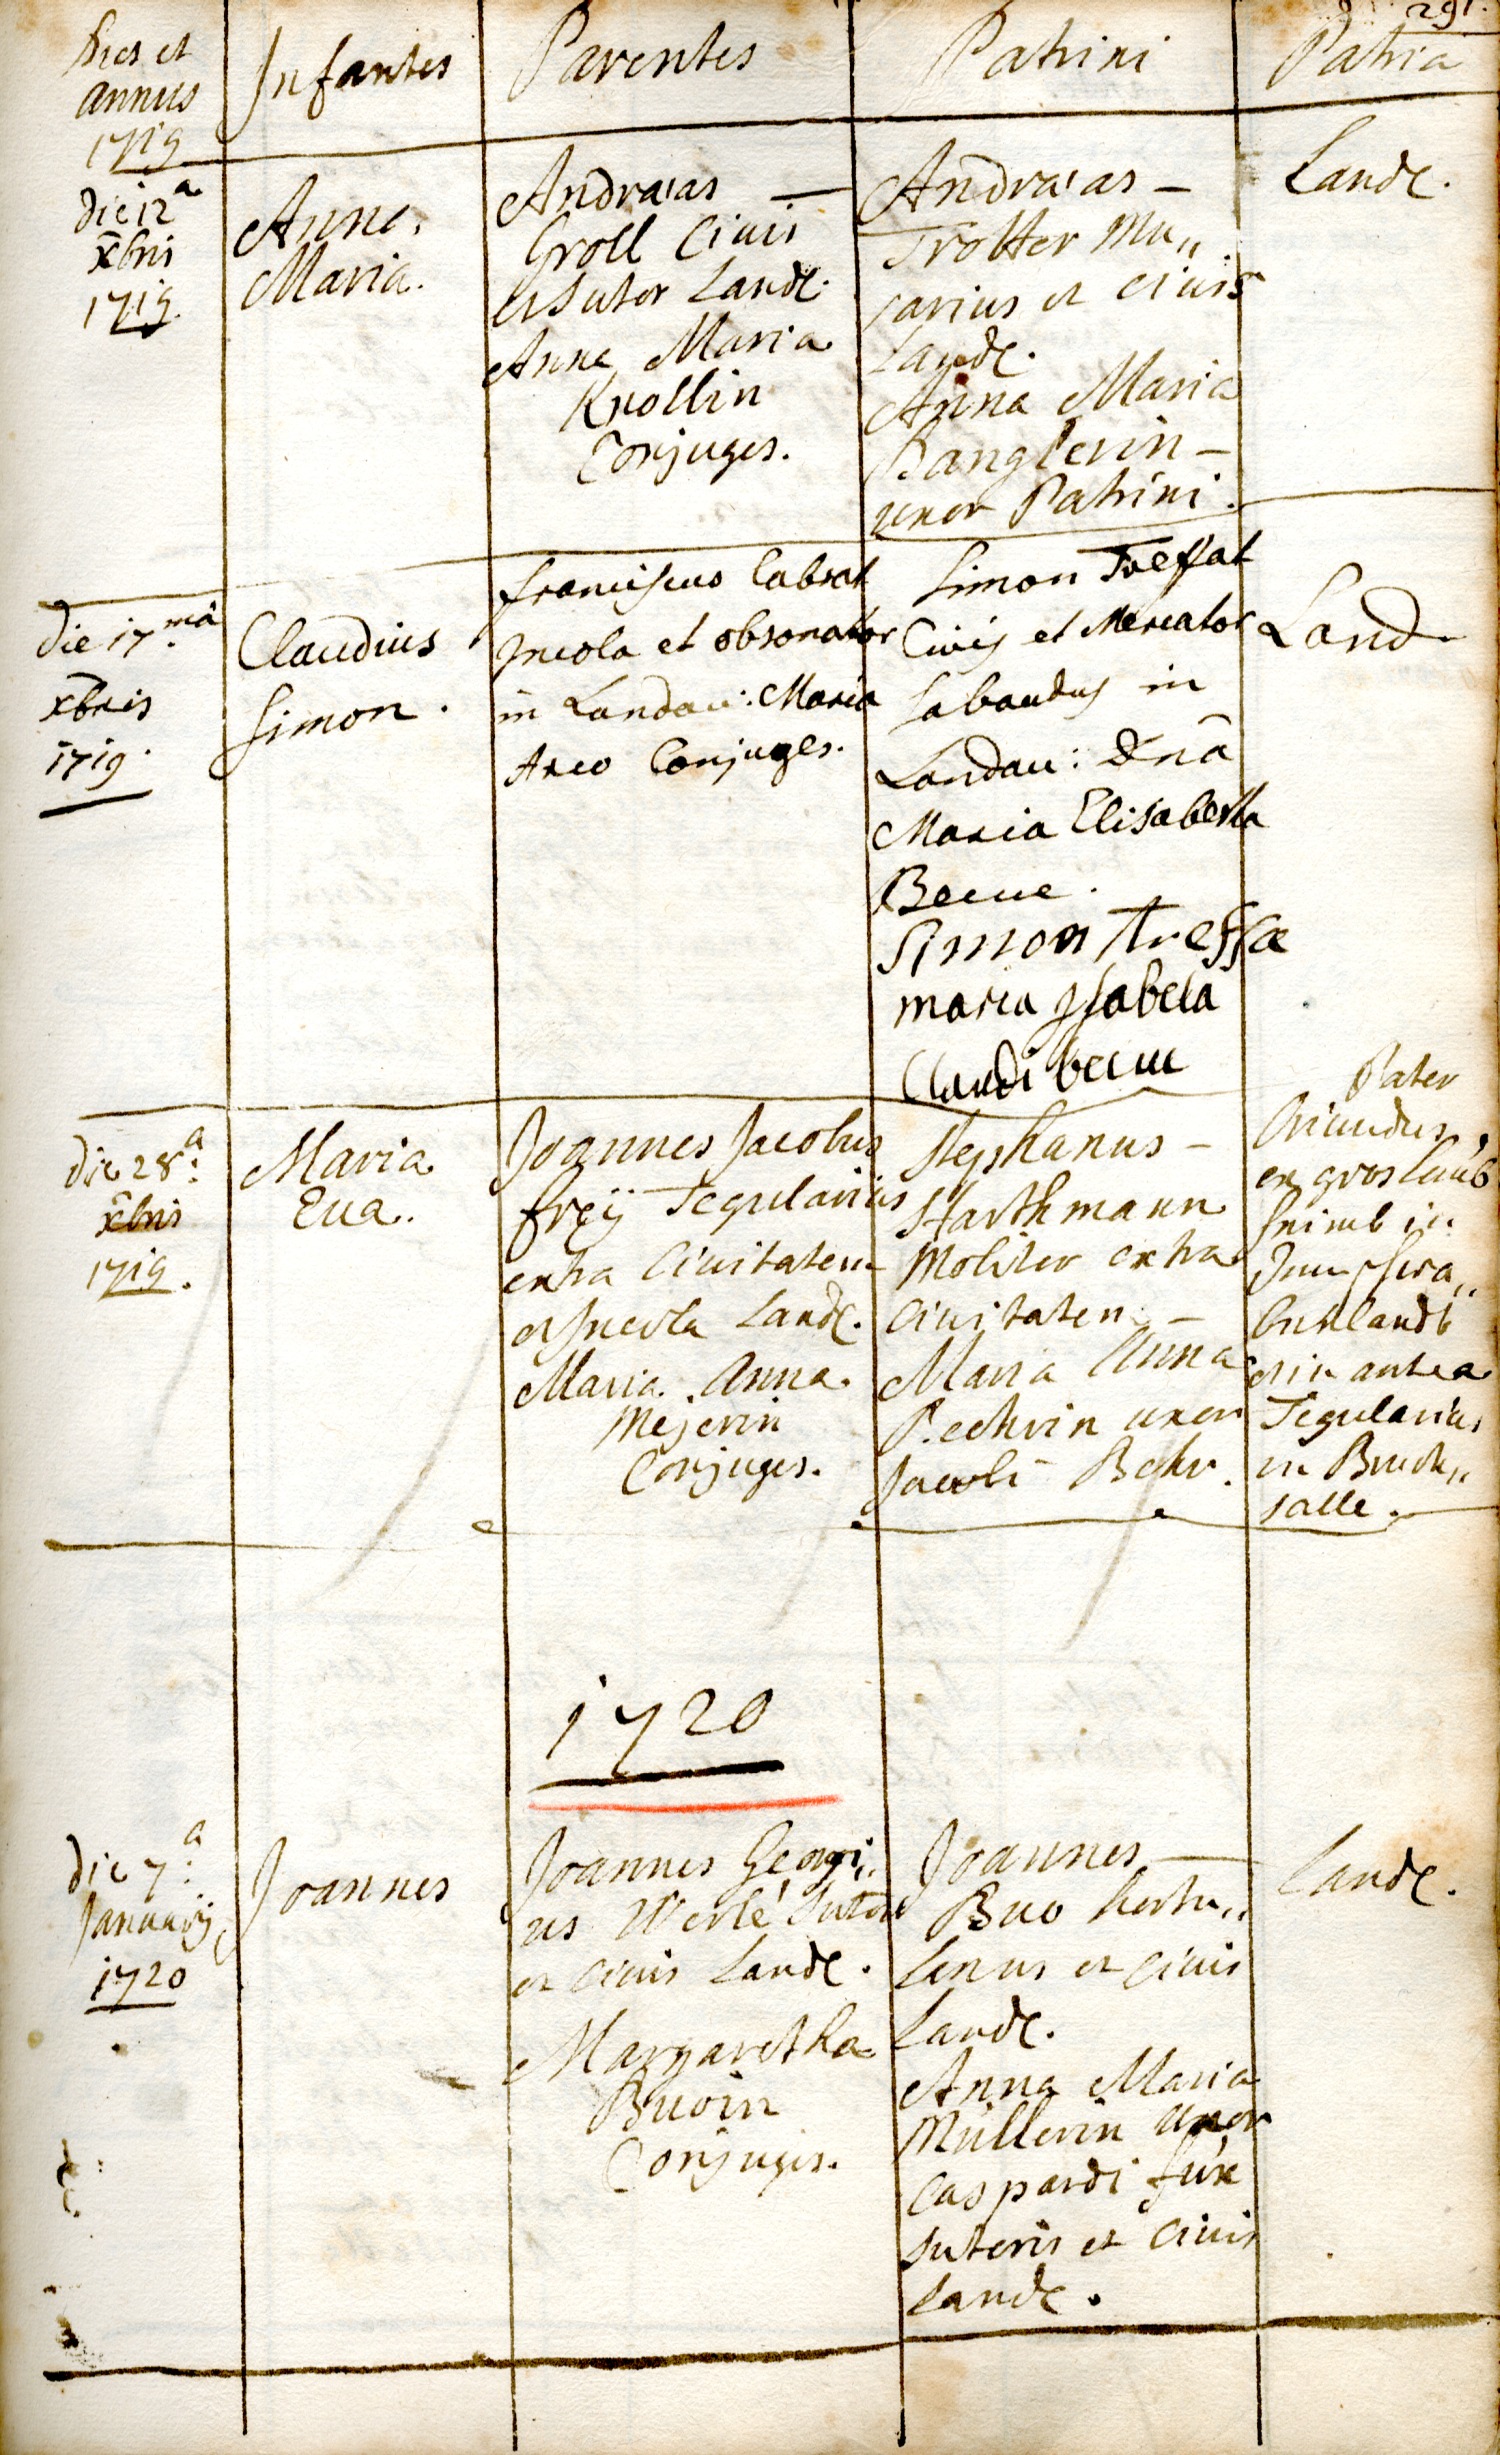 291.
Dies et
annus
1719
Infantes
Parentes
Patrini
Patria
die 12a
xbris
1719.
Anna
Maria.
Andraeas —
Groll Civis
et sutor Land.
Anna Maria
Knollin
Conjuges.
Andraeas —
Trotter Mu„
rarius et civis
Land.
Anna Maria
Banglerin —
uxor Patrini.
Land.
die 17.ma
xbris
1719.
Claudius
Simon.
franciscus Cabrat
Incola et obsonator
in Landau: Maria
Arco Conjuges.
Simon Treffat
Civis et Mercator
Sabaudus in
Landau: Dna
Maria Elisabetha
Becue.
Simon treffae
maria Jsabela
Claudi becue
Land.
die 28.a
xbris
1719.
Maria
Eua.
Joannes Jacobus
freÿ Tegularius
extra Civitatem
et Incola Land.
Maria Anna
Mejerin
Conjuges.
Stephanus —
Harthmann
Moliter extra
civitatem. —
Maria Anna
Pechrin uxor
Jacobi Behr.
Pater
Oriundus
ex
in
antea
Tegularius
in Bruch„
salle.
1720
die 7.a
Januarij
1720
Joannes
Joannes Georgi„
us Werlé sutor
et civis Land.
Margaretha
Buoin
Conjuges.
Joannes —
Buo hortu„
lanus et civis
Land.
Anna Maria
Müllerin uxor
Caspardi fux
sutoris et civis
Land.
Land.